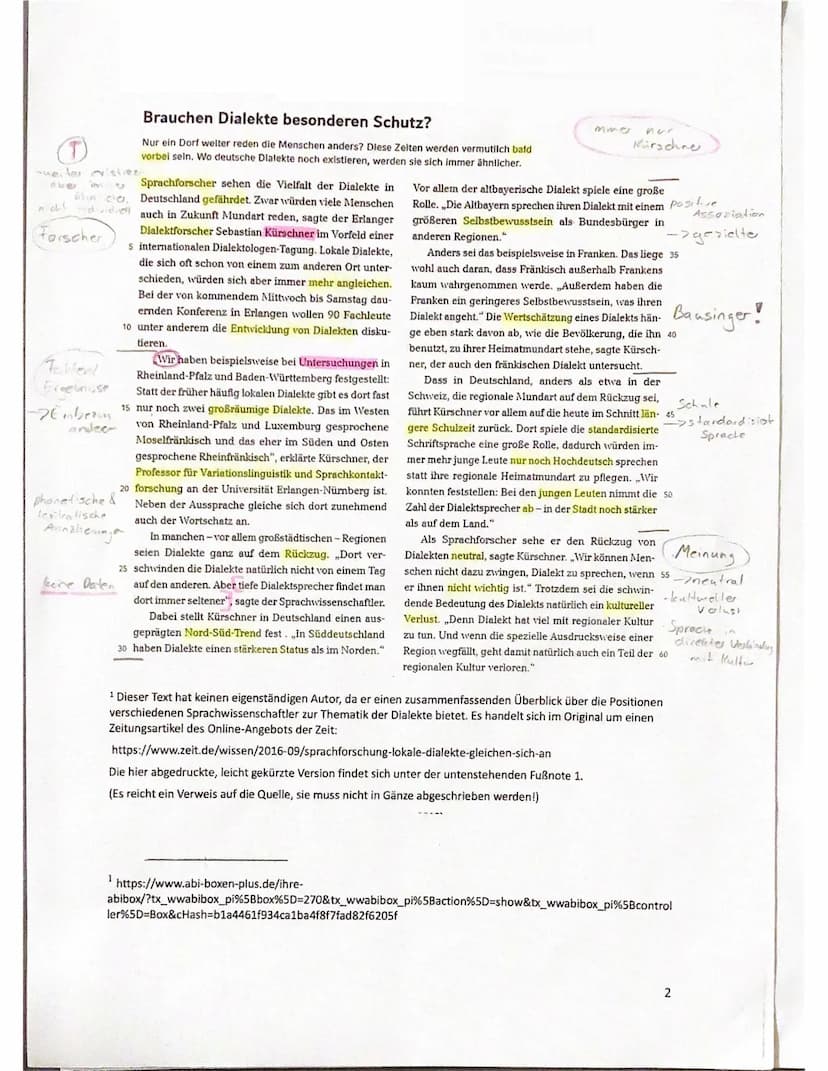 Brauchen Dialekte besonderen Schutz?
nur
Kürschner
Nur ein Dorf weiter reden die Menschen anders? Diese Zeiten werden vermutlich bald
vorbei sein. Wo deutsche Dialekte noch existieren, werden sie sich immer ähnlicher.
Sprachforscher sehen die Vielfalt der Dialekte in
Deutschland gefährdet. Zwar würden viele Menschen
auch in Zukunft Mundart reden, sagte der Erlanger
Dialektforscher Sebastian Kürschner im Vorfeld einer
5 internationalen Dialektologen-Tagung. Lokale Dialekte,
die sich oft schon von einem zum anderen Ort unter-
schieden, würden sich aber immer mehr angleichen.
Bei der von kommendem Mittwoch bis Samstag dau-
ernden Konferenz in Erlangen wollen 90 Fachleute
10 unter anderem die Entwicklung von Dialekten disku-
tieren.
„Wir haben beispielsweise bei Untersuchungen in
Rheinland-Pfalz und Baden-Württemberg festgestellt:
Statt der früher häufig lokalen Dialekte gibt es dort fast
15 nur noch zwei großräumige Dialekte. Das im Westen
von Rheinland-Pfalz und Luxemburg gesprochene
Moselfränkisch und das eher im Süden und Osten
gesprochene Rheinfränkisch“, erklärte Kürschner, der
Professor für Variationslinguistik und Sprachkontakt-
20 forschung an der Universität Erlangen-Nürnberg ist.
Neben der Aussprache gleiche sich dort zunehmend
auch der Wortschatz an.
In manchen – vor allem großstädtischen – Regionen
seien Dialekte ganz auf dem Rückzug. „Dort ver-
25 schwinden die Dialekte natürlich nicht von einem Tag
auf den anderen. Aber tiefe Dialektsprecher findet man
dort immer seltener“, sagte der Sprachwissenschaftler.
Dabei stellt Kürschner in Deutschland einen aus-
geprägten Nord-Süd-Trend fest. „In Süddeutschland
30 haben Dialekte einen stärkeren Status als im Norden.“
Forscher
Ergebnisse
phonetische &
keine Daten
Vor allem der altbayerische Dialekt spiele eine große
Rolle. „Die Altbayern sprechen ihren Dialekt mit einem
größeren Selbstbewusstsein als Bundesbürger in
anderen Regionen.“
Anders sei das beispielsweise in Franken. Das liege 35
wohl auch daran, dass Fränkisch außerhalb Frankens
kaum wahrgenommen werde. „Außerdem haben die
Franken ein geringeres Selbstbewusstsein, was ihren
Dialekt angeht.“ Die Wertschätzung eines Dialekts hän-
ge eben stark davon ab, wie die Bevölkerung, die ihn 40
benutzt, zu ihrer Heimatmundart stehe, sagte Kürsch-
ner, der auch den fränkischen Dialekt untersucht.
Dass in Deutschland, anders als etwa in der
Schweiz, die regionale Mundart auf dem Rückzug sei,
führt Kürschner vor allem auf die heute im Schnitt län- 45
gere Schulzeit zurück. Dort spiele die standardisierte
Schriftsprache eine große Rolle, dadurch würden im-
mer mehr junge Leute nur noch Hochdeutsch sprechen
statt ihre regionale Heimatmundart zu pflegen. „Wir
konnten feststellen: Bei den jungen Leuten nimmt die 50
Zahl der Dialektsprecher ab – in der Stadt noch stärker
als auf dem Land.“
Als Sprachforscher sehe er den Rückzug von
Dialekten neutral, sagte Kürschner. „Wir können Men-
schen nicht dazu zwingen, Dialekt zu sprechen, wenn 55
er ihnen nicht wichtig ist.“ Trotzdem sei die schwin-
dende Bedeutung des Dialekts natürlich ein kultureller
Verlust. „Denn Dialekt hat viel mit regionaler Kultur
zu tun. Und wenn die spezielle Ausdrucksweise einer
Region wegfällt, geht damit natürlich auch ein Teil der 60
regionalen Kultur verloren.“
positive
Assoziation
-> gezielter
Bausinger!
Schule
Sprache
Meinung
-> neutral
- kultureller
Verlust
- Sprache in
direkter Verbindung
mit Kultur
1 Dieser Text hat keinen eigenständigen Autor, da er einen zusammenfassenden Überblick über die Positionen
verschiedenen Sprachwissenschaftler zur Thematik der Dialekte bietet. Es handelt sich im Original um einen
Zeitungsartikel des Online-Angebots der Zeit:
https://www.zeit.de/wissen/2016-09/sprachforschung-lokale-dialekte-gleichen-sich-an
Die hier abgedruckte, leicht gekürzte Version findet sich unter der untenstehenden Fußnote 1.
(Es reicht ein Verweis auf die Quelle, sie muss nicht in Gänze abgeschrieben werden!)
-----
1 https://www.abi-boxen-plus.de/ihre-
abibox/?tx_wwabibox_pi%5Bbox%5D=270&tx_wwabibox_pi%5Baction%5D=show&tx_wwabibox_pi%5Bcontrol
ler%5D=Box&cHash=b1a4461f934ca1ba4f8f7fad82f6205f
2